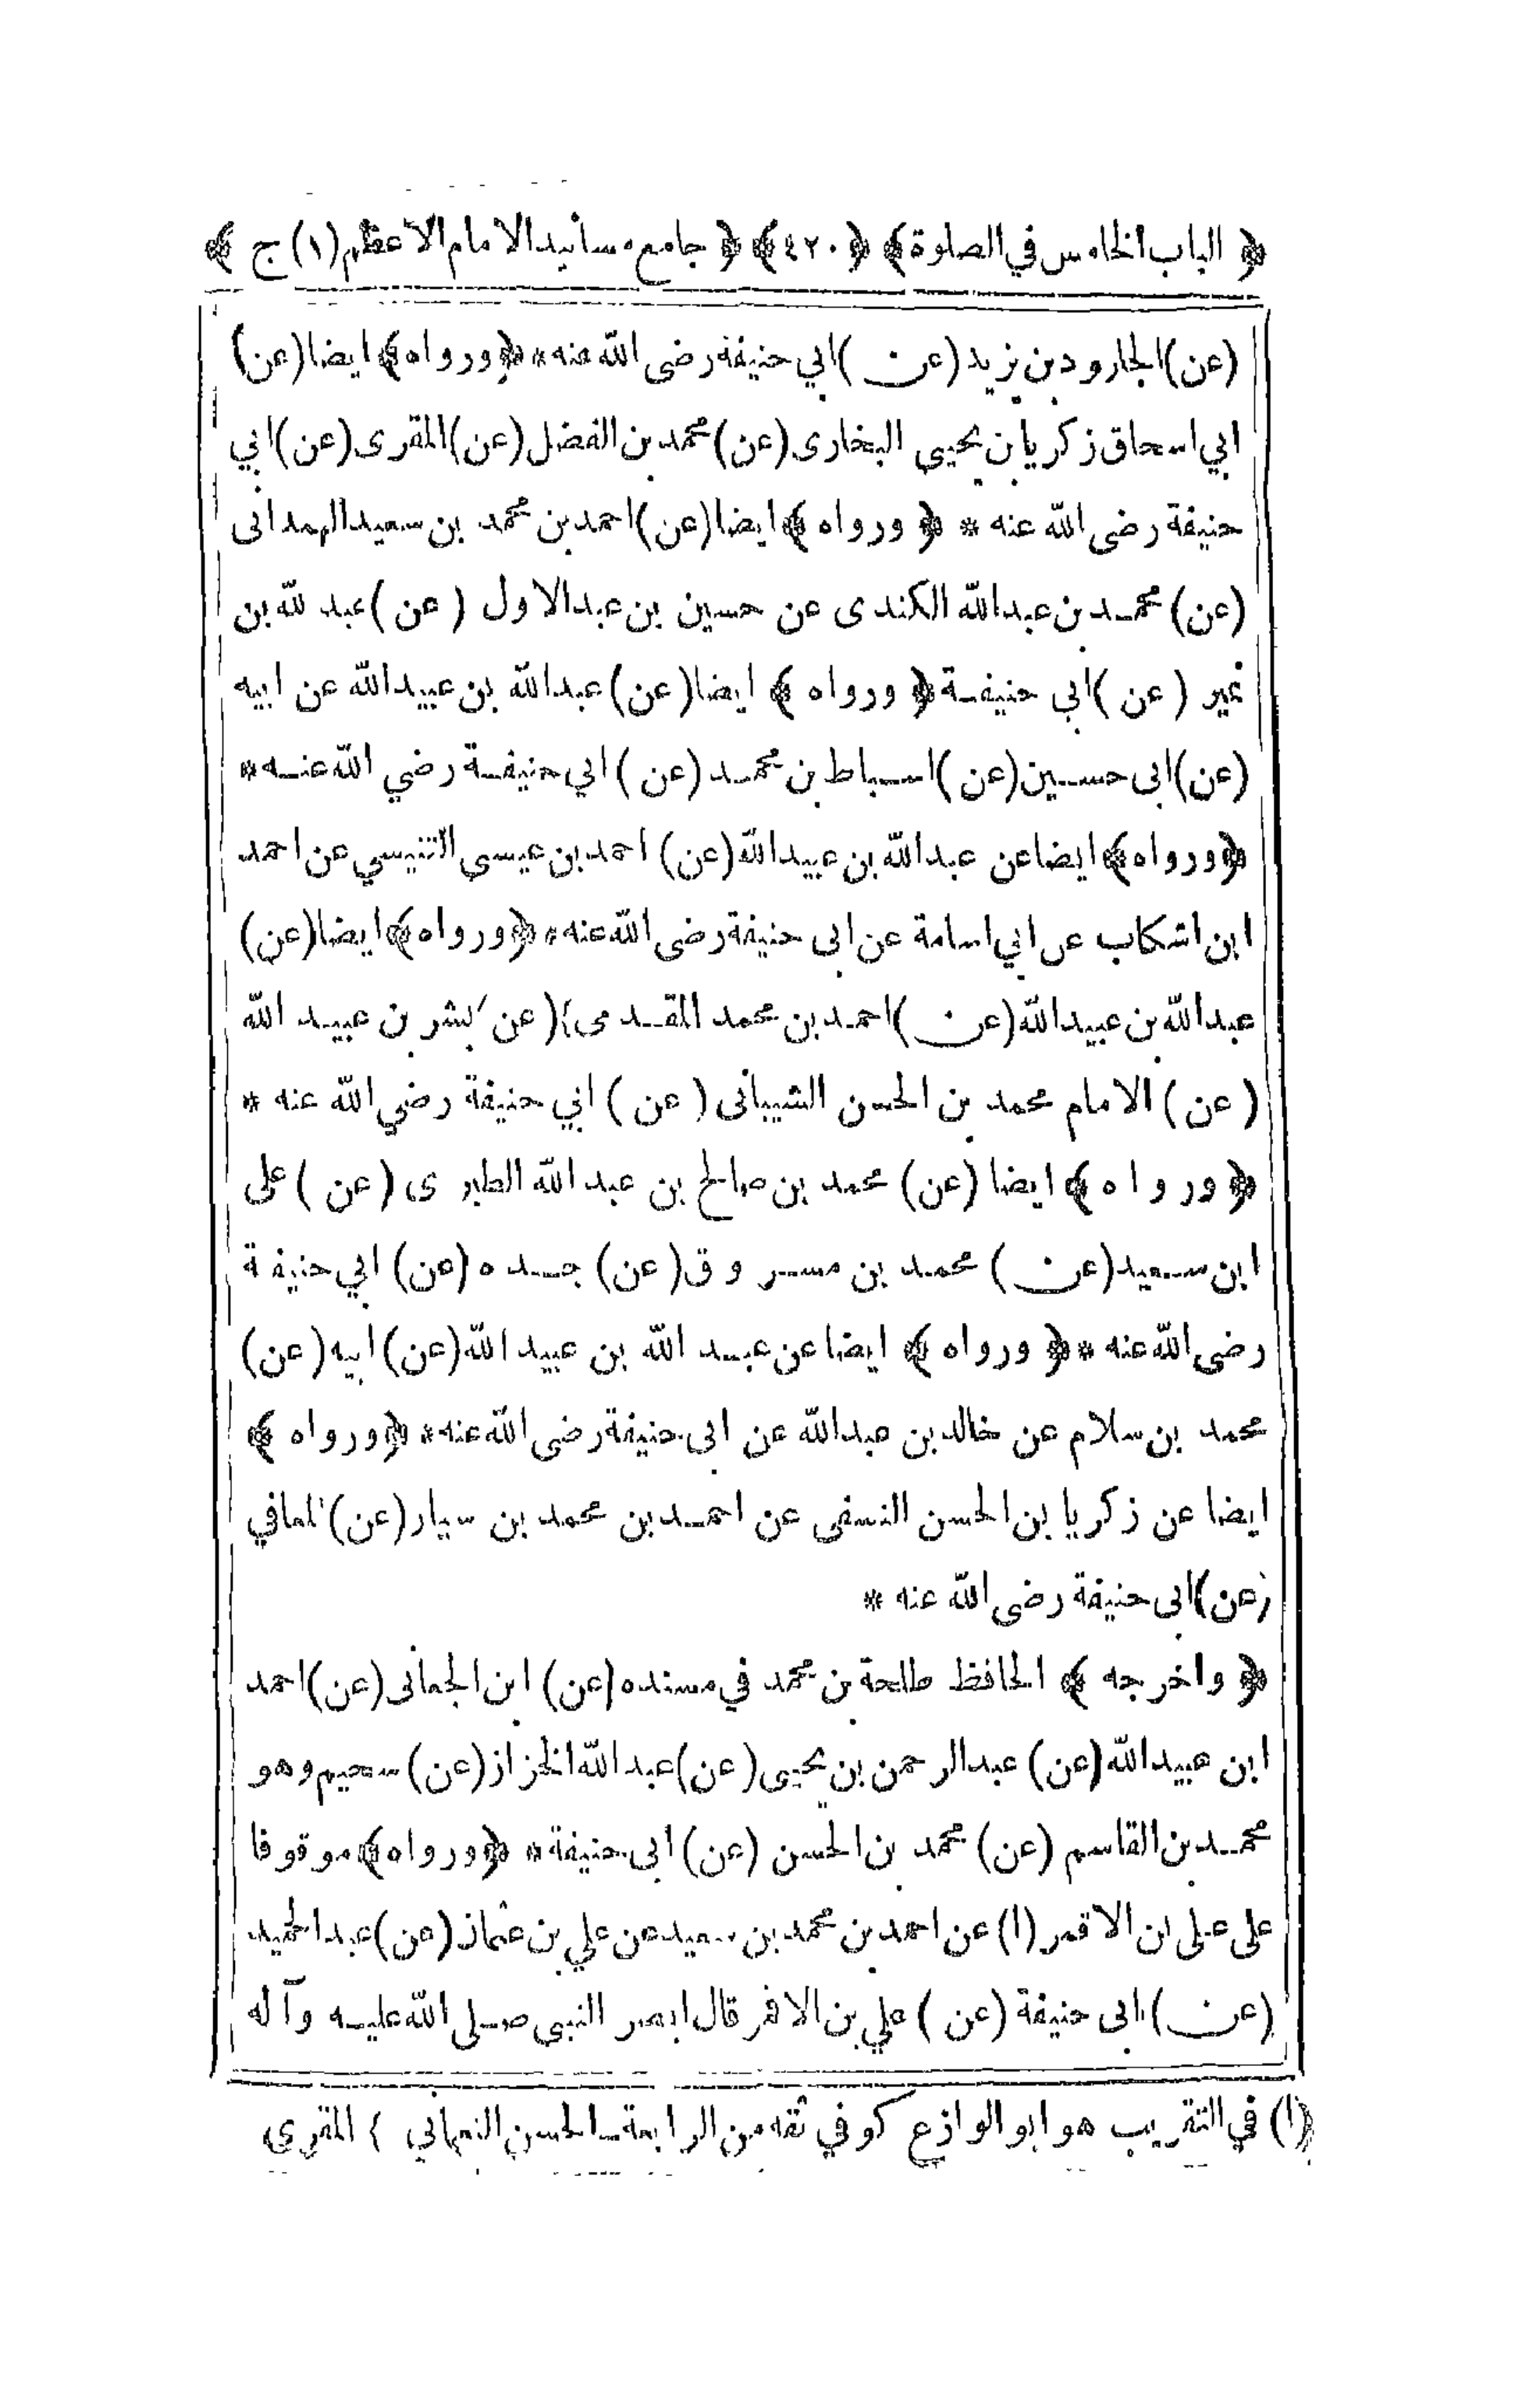 ﴿ الباب الخامس في الصلوة ﴾ ﴿ ٤٢٠ ﴾ ﴿ جامع مسانيد الامام الاعظم (١) ج ﴾
(عن) الجارود بن يزيد (عن) ابي حنيفة رضى الله عنه * ﴿ورواه﴾ ايضا (عن)
ابي اسحاق زكريا بن يحيى البخارى (عن) محمد بن الفضل (عن) المقرى (عن) ابي
حنيفة رضى الله عنه * ﴿ ورواه ﴾ ايضا (عن) احمد بن محمد بن سعيد الهمدانى
(عن) محمد بن عبد الله الكندى عن حسين بن عبد الاول (عن) عبد لله بن
نمير (عن) ابي حنيفة ﴿ ورواه ﴾ ايضا (عن) عبد الله بن عبيد الله عن ابيه
(عن) ابى حسين (عن) اسباط بن محمد (عن) ابي حنيفة رضي الله عنه *
﴿ورواه﴾ ايضا عن عبد الله بن عبيد الله (عن) احمد بن عيسى التنيسي عن احمد
ابن اشكاب عن ابي اسامة عن ابى حنيفة رضى الله عنه * ﴿ورواه﴾ ايضا (عن)
عبد الله بن عبيد الله (عن) احمد بن محمد المقدمى (عن بشر بن عبيد الله
(عن) الامام محمد بن الحسن الشيبانى (عن) ابي حنيفة رضي الله عنه *
﴿ورواه﴾ ايضا (عن) محمد بن صالح بن عبد الله الطبرى (عن) على
ابن سعيد (عن) محمد بن مسروق (عن) جده (عن) ابي حنيفة
رضى الله عنه * ﴿ ورواه ﴾ ايضا عن عبد الله بن عبيد الله (عن) ابيه (عن)
محمد بن سلام عن خالد بن عبد الله عن ابى حنيفة رضى الله عنه * ﴿ورواه ﴾
ايضا عن زكريا بن الحسن النسفى عن احمد بن محمد بن سيار (عن) المعافي
(عن) ابى حنيفة رضى الله عنه *
﴿ واخرجه ﴾ الحافظ طلحة بن محمد في مسنده (عن) ابن الجمانى (عن) احمد
ابن عبيد الله (عن) عبد الرحمن بن يحيى (عن) عبد الله الخزاز (عن) سحيم وهو
محمد بن القاسم (عن) محمد بن الحسن (عن) ابى حنيفة * ﴿ورواه﴾ موقوفا
على على ابن الاقمر (١) عن احمد بن محمد بن سعيد عن علي بن عثمان (عن) عبد الحميد
(عن) ابى حنيفة (عن) علي بن الاقمر قال ابصر النبى صلى الله عليه وآله
(١) في التقريب هو ابو الوازع كوفي ثقه من الرابعة ـ الحسن النعماني } المقرى